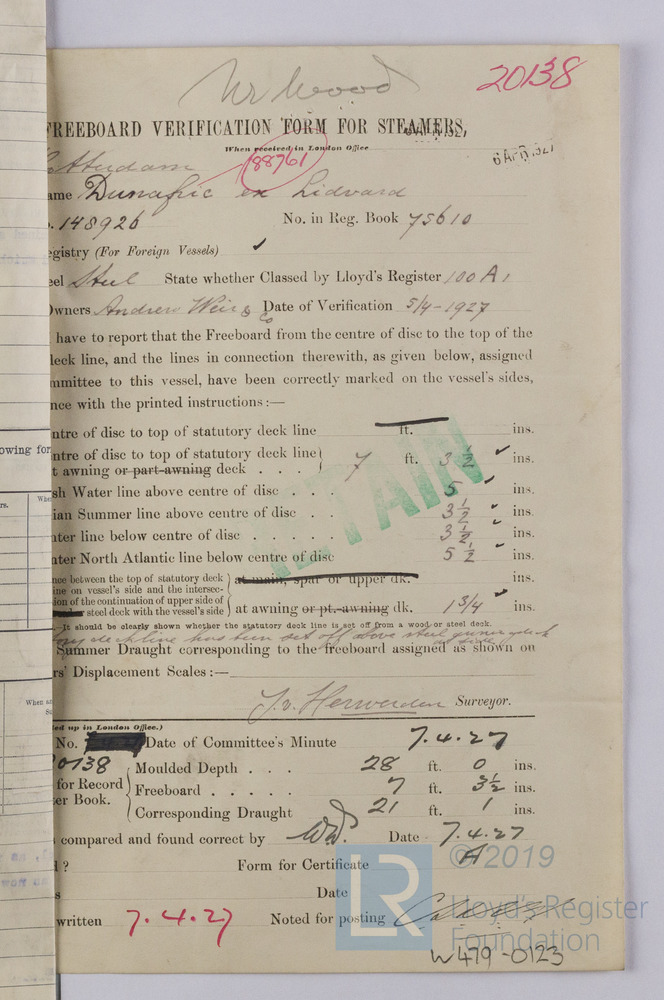 Mr Wood
20138
FREEBOARD VERIFICATION FORM FOR STEAMERS,
When received in London Office
6 APR. 1927
otterdam
88761
ame Dunafric ex Lidvard
. 148926 No. in Reg. Book 75610
egistry (For Foreign Vessels) ✓
eel Steel State whether Classed by Lloyd's Register 100 A1
Owners Andrew Weir & Co Date of Verification 5/4-1927
have to report that the Freeboard from the centre of disc to the top of the
deck line, and the lines in connection therewith, as given below, assigned
mmittee to this vessel, have been correctly marked on the vessel's sides,
nce with the printed instructions:—
ntre of disc to top of statutory deck line ft. ins.
ntre of disc to top of statutory deck line
t awning or part-awning deck . . . 7 ft. 3 ½ ✓ ins.
sh Water line above centre of disc . . . 5 ✓ ins.
ian Summer line above centre of disc . . 3 ½ ✓ ins.
nter line below centre of disc . . . . . 3 ½ ✓ ins.
nter North Atlantic line below centre of disc 5 ½ ✓ ins.
RETAIN
nce between the top of statutory deck
ine on vessel's side and the intersec-
ion of the continuation of upper side of
steel deck with the vessel's side
at main, spar or upper dk. ins.
at awning or pt.-awning dk. 1 3/4 ✓ ins.
—It should be clearly shown whether the statutory deck line is set off from a wood or steel deck.
deckline has been set off above steel
Summer Draught corresponding to the freeboard assigned as shown on
rs' Displacement Scales:—
J. v. Herwerden Surveyor.
ed up in London Office.)
No. Date of Committee's Minute 7.4.27
20138
for Record
er Book.
Moulded Depth . . . 28 ft. 0 ins.
Freeboard . . . . . 7 ft. 3½ ins.
Corresponding Draught 21 ft. 1 ins.
compared and found correct by WW. Date 7.4.27
l ? Form for Certificate A
s Date
written 7.4.27 Noted for posting
owing for
rs.
Whe
When as
Su
© 2019
LR
Lloyd's Register
Foundation
W479-0123